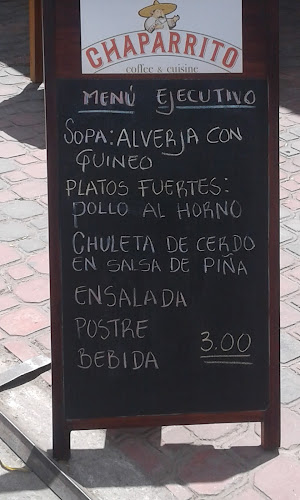 CHAPARRITO
coffee & cuisine
MENÚ EJECUTIVO
SOPA: ALVERJA CON
GUINEO
PLATOS FUERTES:
POLLO AL HORNO
CHULETA DE CERDO
EN SALSA DE PIÑA
ENSALADA
POSTRE
BEBIDA 3.00